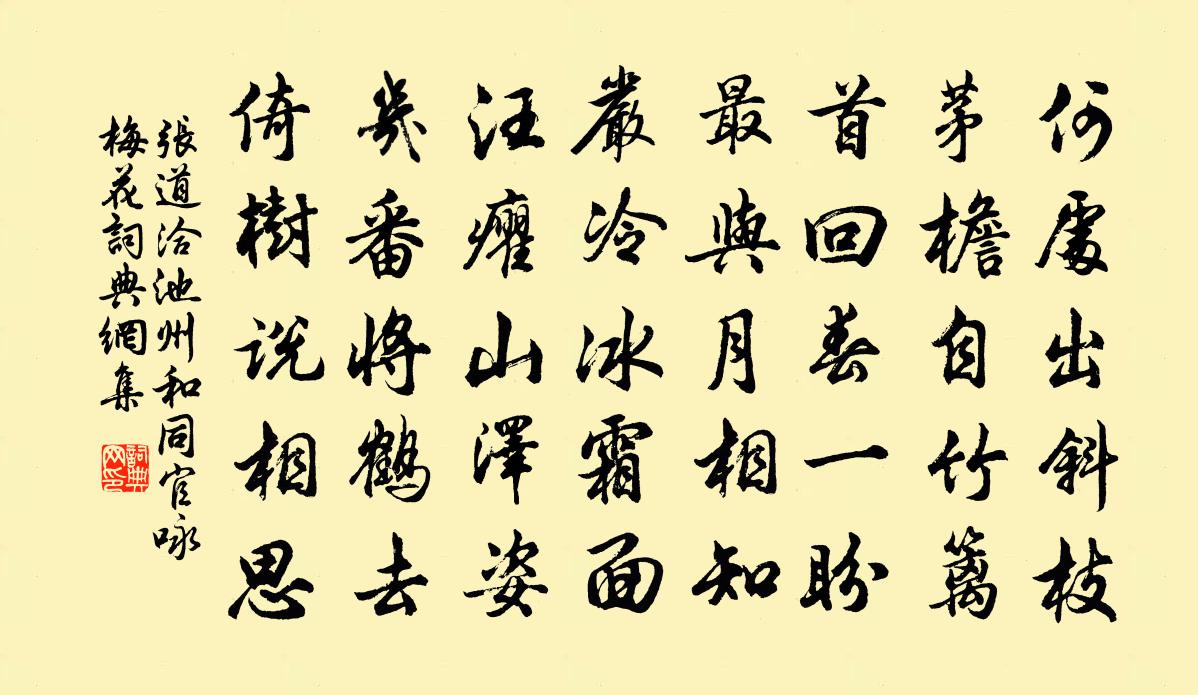 何處出斜枝
茅檐自竹籬
首回春一盼
最與月相知
嚴冷冰霜面
汪癯山澤姿
幾番將鶴去
倚樹說相思
張道洽池州和同官咏
梅花詞典網集
詞典
网印